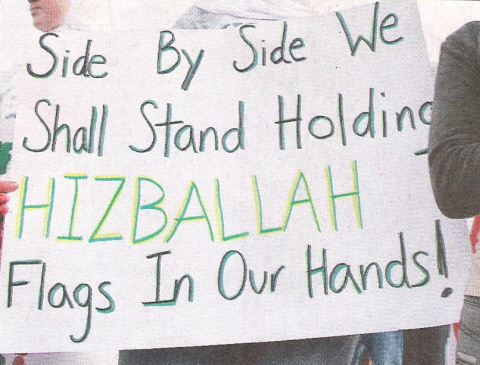 Side By Side We
Shall Stand Holding
HIZBALLAH
Flags In Our Hands!